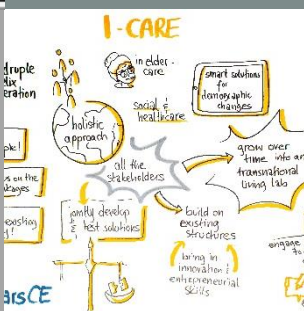 I-CARE
druple
lix
eration
in elder-
care
smart solutions
for
demographic
changes
social &
healthcare
holistic
approach
all the
stakeholders
grow over
time into an
transnational
living lab
s on the
kages
existing
jointly develop
& test solutions
build on
existing
structures
bring in
innovation &
entrepreneurial
skills
engage
to
arsCE